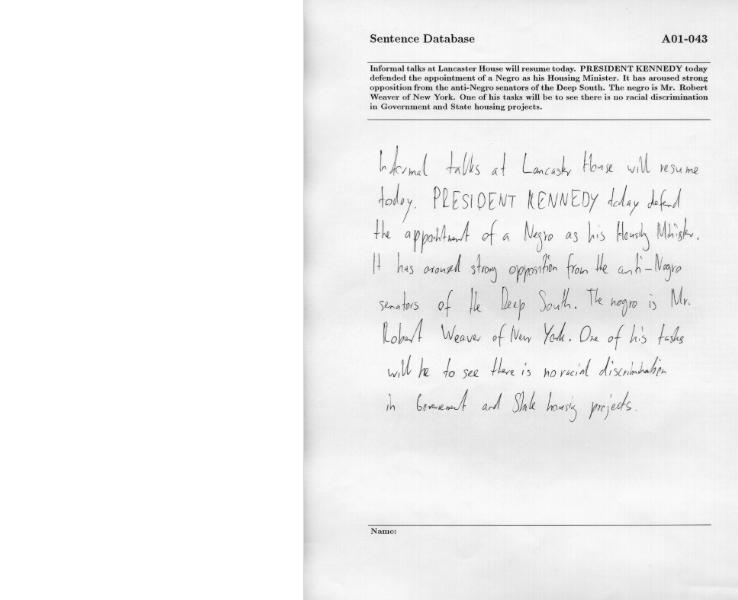 Sentence Database A01-043
Informal talks at Lancaster House will resume today. PRESIDENT KENNEDY today
defended the appointment of a Negro as his Housing Minister. It has aroused strong
opposition from the anti-Negro senators of the Deep South. The negro is Mr. Robert
Weaver of New York. One of his tasks will be to see there is no racial discrimination
in Government and State housing projects.
Informal talks at Lancaster House will resume
today. PRESIDENT KENNEDY today defend
the appointment of a Negro as his Housing Minister.
It has aroused strong opposition from the anti-Negro
senators of the Deep South. The negro is Mr.
Robert Weaver of New York. One of his tasks
will be to see there is no racial discrimination
in Government and State housing projects.
Name: